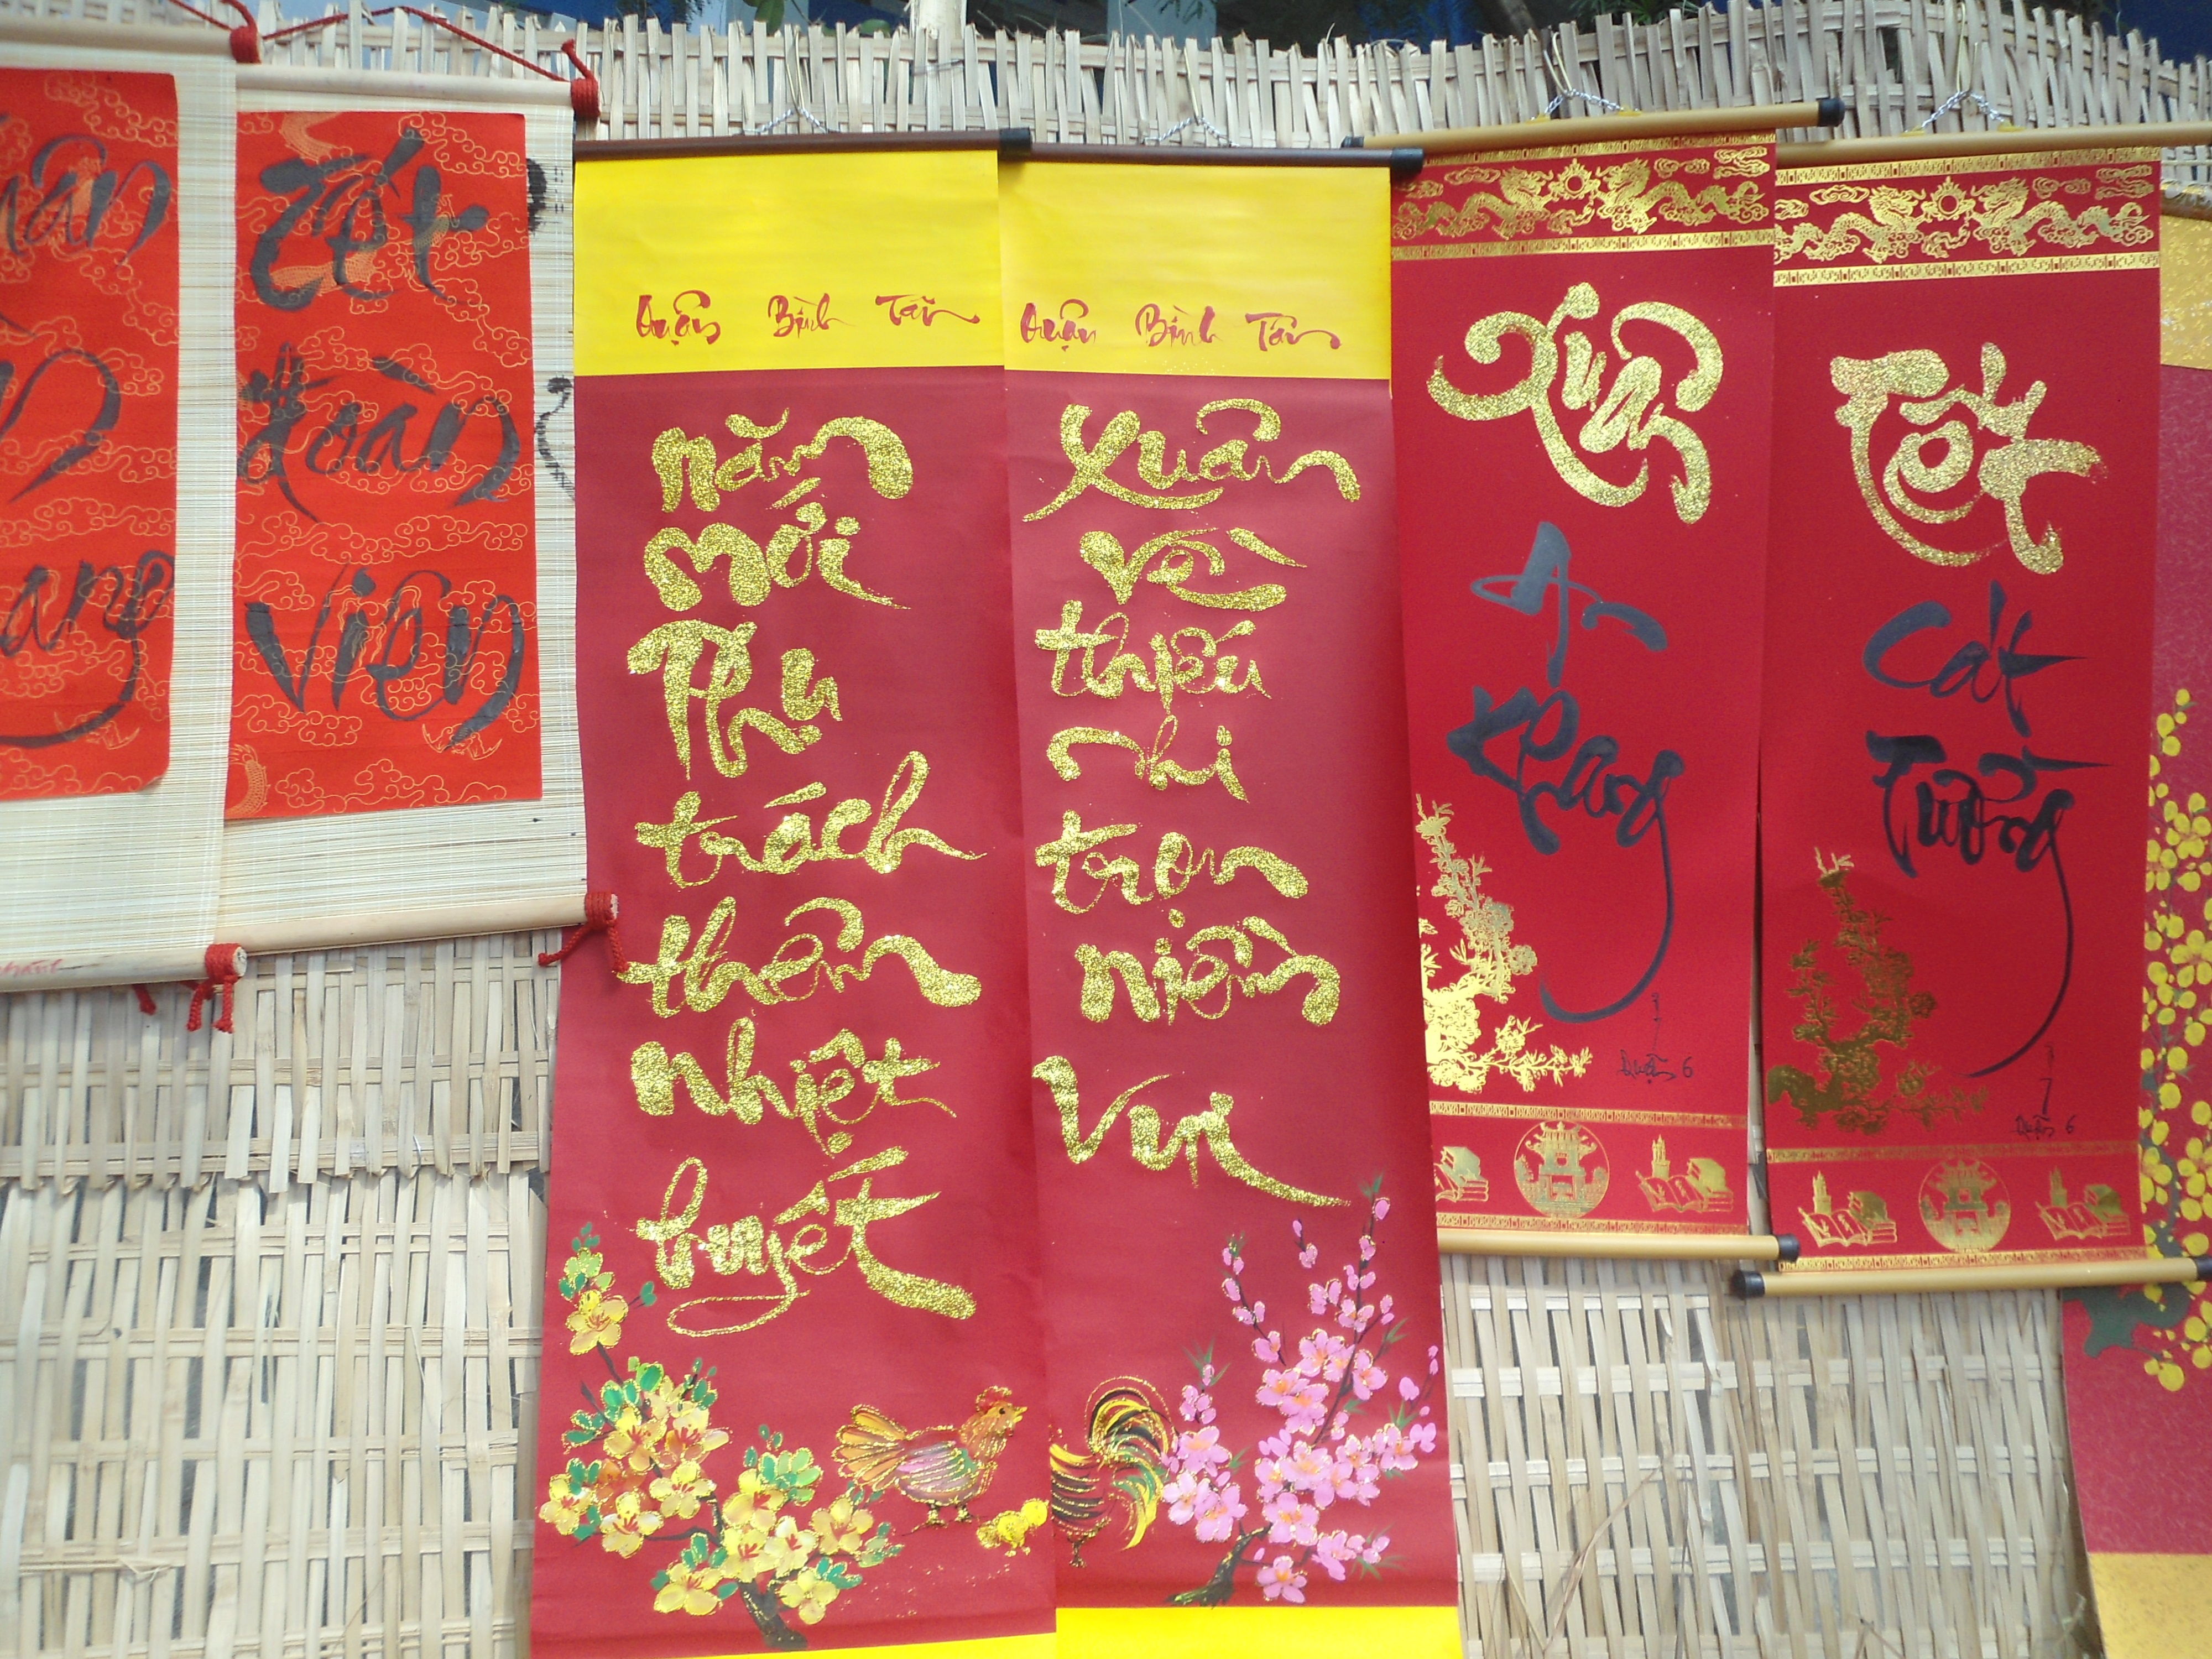 Tết
đoàn
viên
Quận Bình Tân
năm
mới
Phụ
trách
thêm
nhiệt
huyết
Quận Bình Tân
Xuân
về
thiếu
nhi
trọn
niềm
vui
Xuân
An
Khang
Quận 6
Tết
Cát
Tường
Quận 6